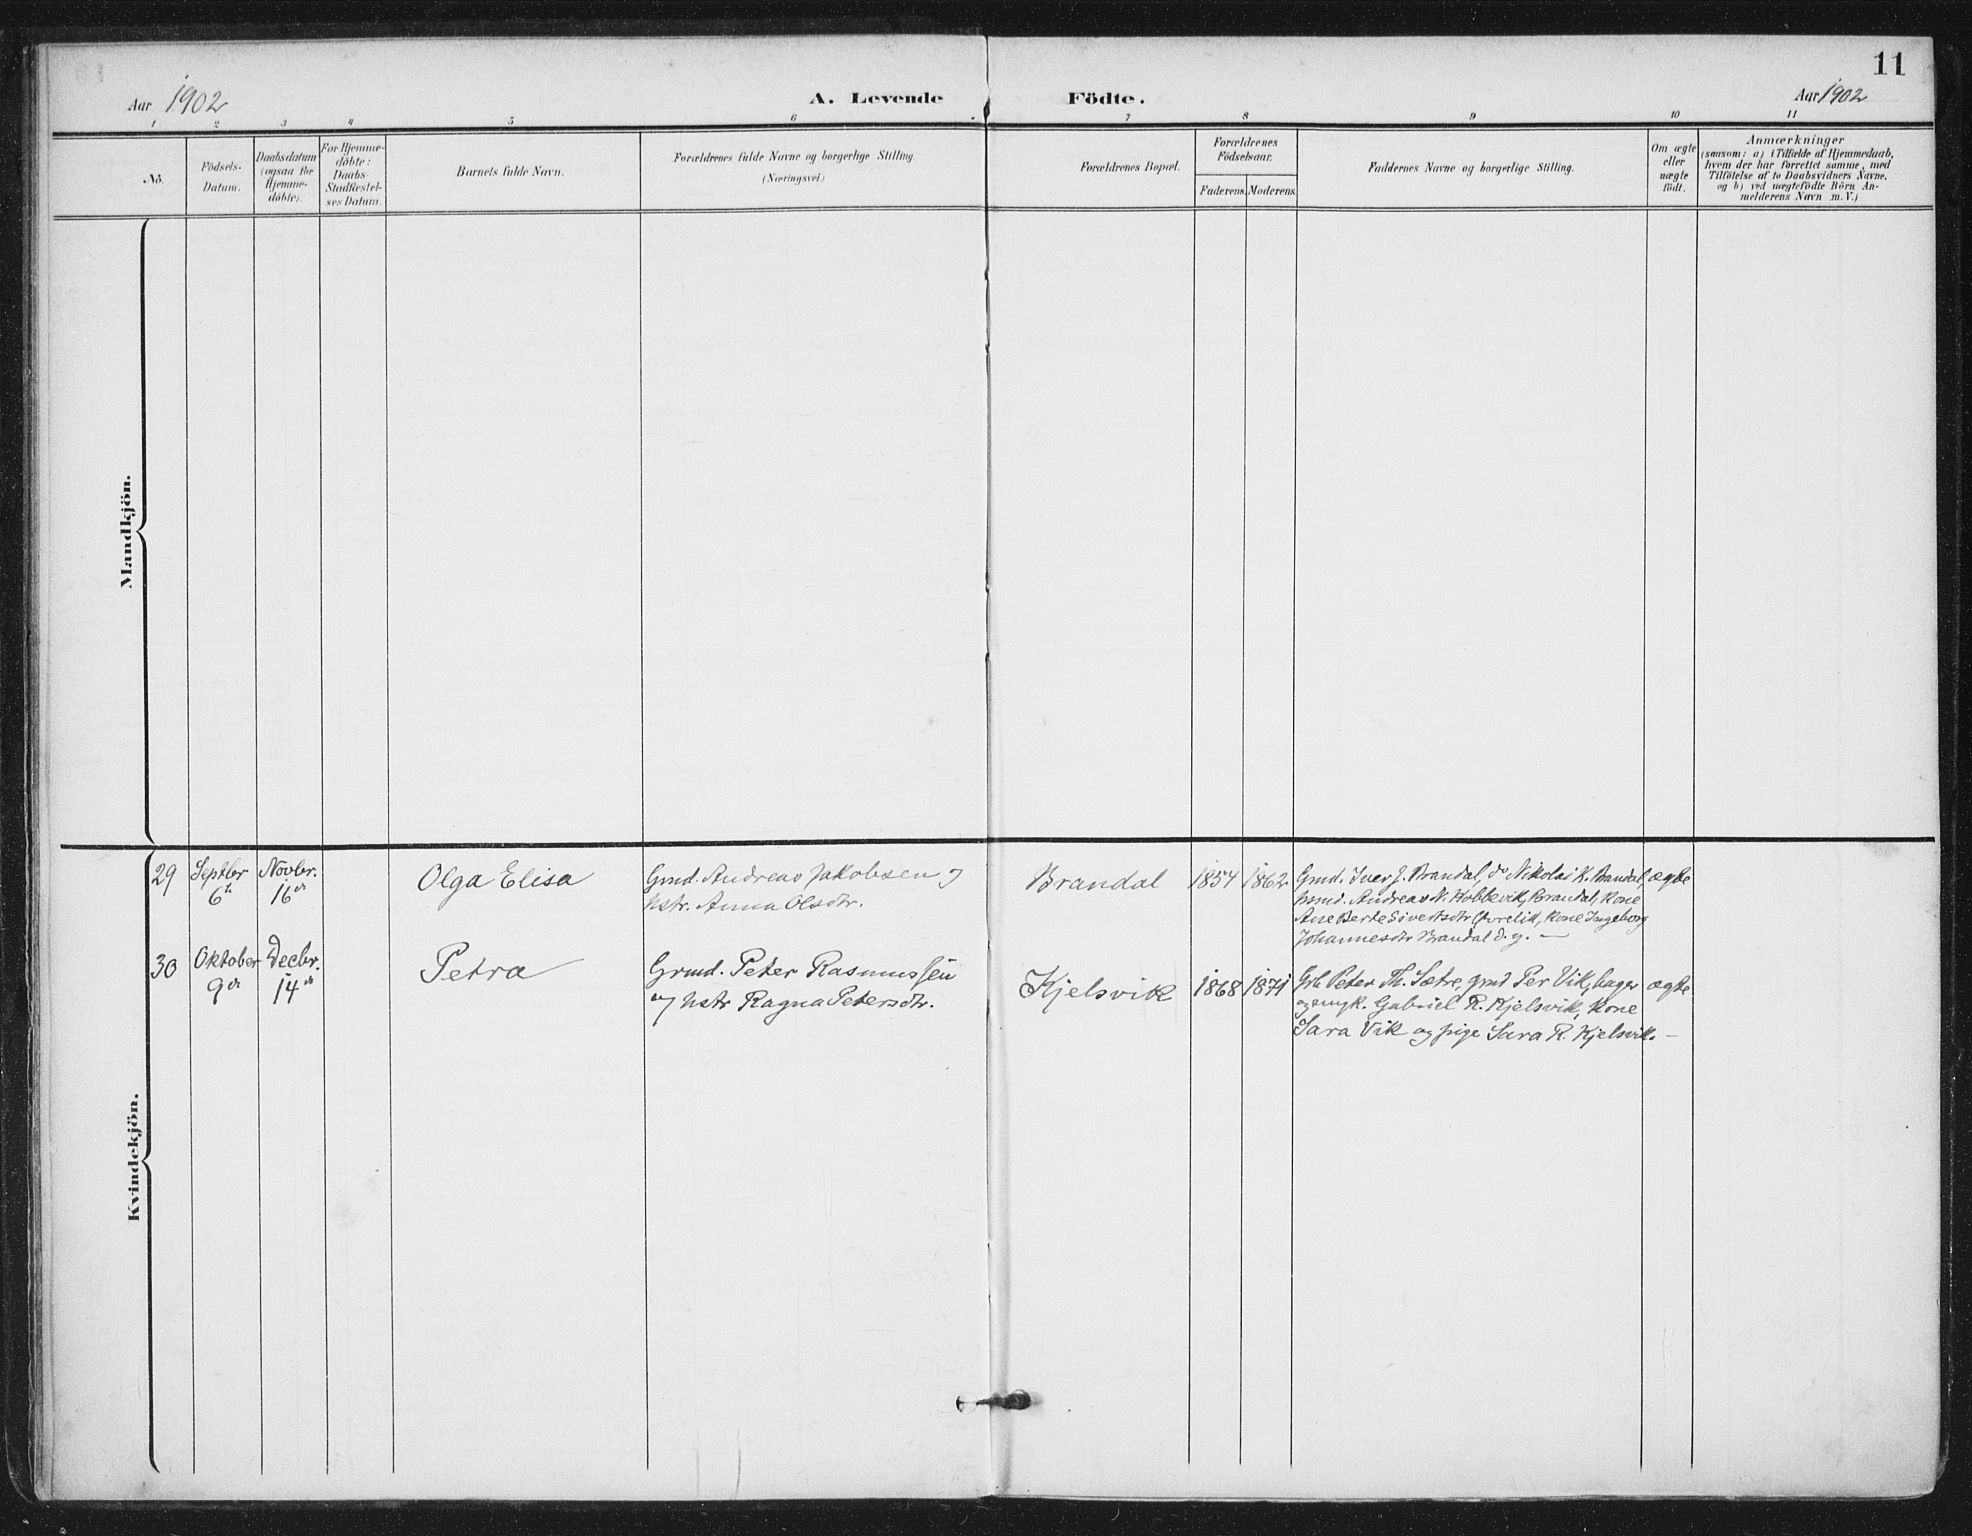 11
Aar 1902
A. Levende Födte.
Aar 1902
1 2 3 4 5 6 7 8 9 10 11
No.
Födsels-
Datum.
Daabsdatum
(ogsaa for
Hjemme-
döbte).
For Hjemme-
döbte:
Daabs-
Stadfæstel-
ses Datum.
Barnets fulde Navn.
Forældrenes fulde Navne og borgerlige Stilling.
(Næringsvei.)
Forældrenes Bopæl.
Forældrenes
Födselsaar.
Faderens. Moderens.
Faddernes Navne og borgerlige Stilling.
Om ægte
eller
uægte
födt.
Anmærkninger
(saasom: a) i Tilfælde af Hjemmedaab,
hvem der har forrettet samme, med
Tilföielse af to Daabsvidners Navne,
og b) ved uægtefödte Börn An-
melderens Navn m. V.)
Mandkjön.
Kvindekjön.
29
Septbr
6te
Novbr.
16de
Olga Elisa
Gmd. Andreas Jakobsen og
hstr. Anna Olsdtr.
Brandal
1854
1862
Gmd. Iver J. Brandal, do Nikolai K. Brandal,
hsmd. Andreas N. Hobbevik, Brandal, Kone
Ane Berte Sivertsdtr Øvrelid, Kone Ingeborg
Johannesdtr Brandal d. y. —
ægte
30
Oktober
9de
Decbr.
14de
Petra
Grmd. Peter Rasmussen
og hstr Ragna Petersdtr.
Kjelsvik
1868
1871
Peter Th. Sætre, gmd Per Vik, bager
og ungk. Gabriel R. Kjelsvik, Kone
Sara Vik og pige Sara R. Kjelsvik. —
ægte